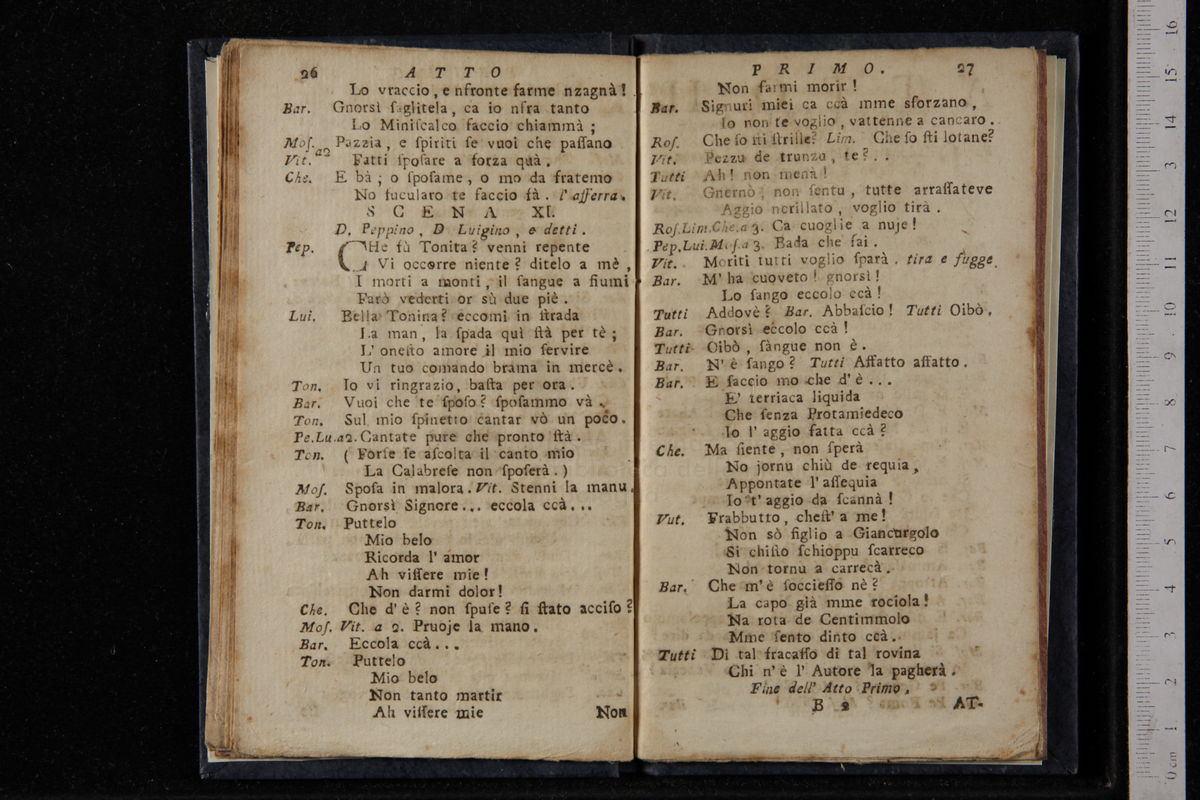 26 ATTO
Lo vraccio, e nfronte farme nzagnà!
Bar. Gnorsì ſaglitela, ca io nfra tanto
Lo Miniſcalco faccio chiammà;
Moſ. Pazzia, e ſpiriti ſe vuoi che paſſano
Vit. a2 Fatti ſpoſare a forza quà.
Che. E bà; o ſpoſame, o mo da fratemo
No fucularo te faccio fà. l'afferra.
SCENA XI.
D. Peppino, D Luigino, e detti.
Pep. CHe fù Tonita? venni repente
Vi occorre niente? ditelo a mè,
I morti a monti, il ſangue a fiumi
Farò vederti or sù due piè.
Lui. Bella Tonina? eccomi in ſtrada
La man, la ſpada quì ſtà per tè;
L' oneſto amore il mio ſervire
Un tuo comando brama in mercè.
Ton. Io vi ringrazio, baſta per ora.
Bar. Vuoi che te ſpoſo? ſpoſammo và.
Ton. Sul mio ſpinetto cantar vò un poco.
Pe.Lu.a2. Cantate pure che pronto ſtà.
Ton. (Forſe ſe aſcolta il canto mio
La Calabreſe non ſpoſerà.)
Moſ. Spoſa in malora. Vit. Stenni la manu.
Bar. Gnorsì Signore... eccola ccà...
Ton. Puttelo
Mio belo
Ricorda l' amor
Ah viſſere mie!
Non darmi dolor!
Che. Che d' è? non ſpuſe? ſi ſtato acciſo?
Moſ. Vit. a 2. Pruoje la mano.
Bar. Eccola ccà...
Ton. Puttelo
Mio belo
Non tanto martir
Ah viſſere mie
Non
PRIMO. 27
Non farmi morir!
Bar. Signuri miei ca ccà mme sforzano,
Io non te voglio, vattenne a cancaro.
Roſ. Che ſo ſti ſtrille? Lim. Che ſo ſti lotane?
Vit. Pezzu de trunzu, te?..
Tutti Ah! non menà!
Vit. Gnernò, non ſentu, tutte arraſſateve
Aggio ncrillato, voglio tirà.
Roſ.Lim.Che.a 3. Ca cuoglie a nuje!
Pep.Lui.Moſ.a 3. Bada che fai.
Vit. Moriti tutti voglio ſparà. tira e fugge
Bar. M' ha cuoveto! gnorsì!
Lo ſango eccolo ccà!
Tutti Addovè? Bar. Abbaſcio! Tutti Oibò.
Bar. Gnorsì eccolo ccà!
Tutti Oibò, ſàngue non è.
Bar. N' è ſango? Tutti Affatto affatto.
Bar. E faccio mo che d' è...
E' terriaca liquida
Che ſenza Protamiedeco
Io l' aggio fatta ccà?
Che. Ma ſiente, non ſperà
No jornu chiù de requia,
Appontate l' aſſequia
Io t' aggio da ſcannà!
Vut. Frabbutto, cheſt' a me!
Non sò figlio a Giancurgolo
Si chiſto ſchioppu ſcarreco
Non tornu a carrecà.
Bar. Che m' è ſoccieſſo nè?
La capo già mme rociola!
Na rota de Centimmolo
Mme ſento dinto ccà.
Tutti Di tal fracaſſo di tal rovina
Chi n' è l' Autore la pagherà.
Fine dell' Atto Primo.
B 2 AT-
0 cm 1 2 3 4 5 6 7 8 9 10 11 12 13 14 15 16